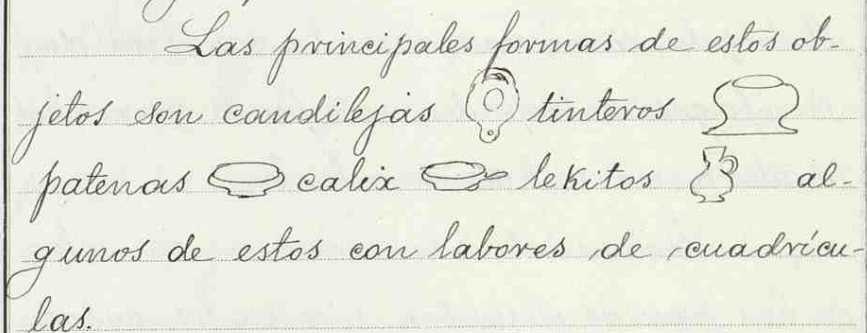 Las principales formas de estos ob-
jetos son candilejas tinteros
patenas calix lekitos al-
gunos de estos con labores de cuadrícu-
las.